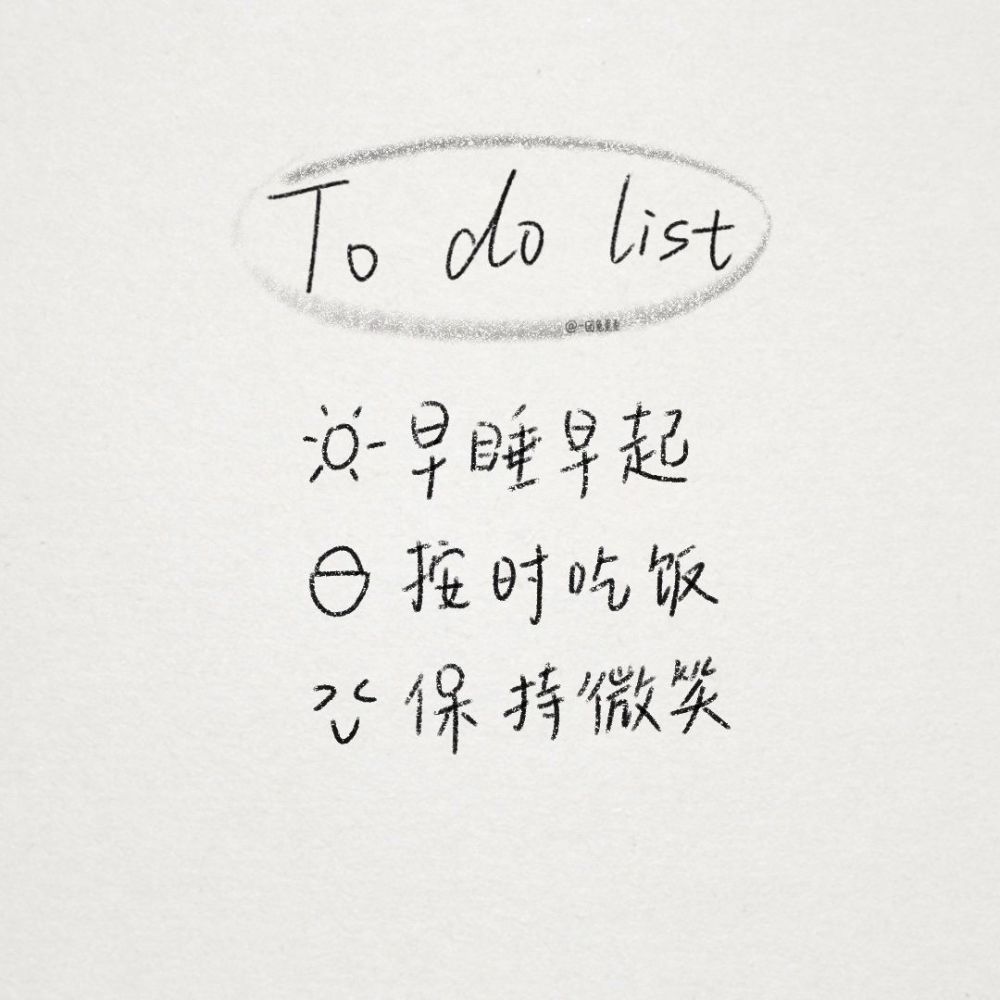 To do list
早睡早起
按时吃饭
保持微笑